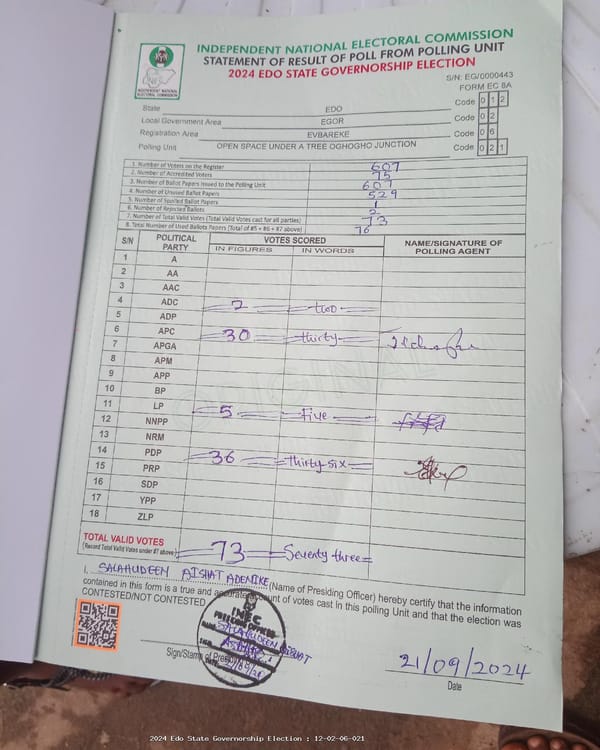 INDEPENDENT NATIONAL ELECTORAL COMMISSION
STATEMENT OF RESULT OF POLL FROM POLLING UNIT
2024 EDO STATE GOVERNORSHIP ELECTION
INDEPENDENT NATIONAL ELECTORAL COMMISSION
S/N: EG/0000443
FORM EC 8A
State EDO Code 0 1 2
Local Government Area EGOR Code 0 2
Registration Area EVBAREKE Code 0 6
Polling Unit OPEN SPACE UNDER A TREE OGHOGHO JUNCTION Code 0 2 1
1. Number of Voters on the Register 607
2. Number of Accredited Voters 75
3. Number of Ballot Papers Issued to the Polling Unit 607
4. Number of Unused Ballot Papers 529
5. Number of Spoiled Ballot Papers 1
6. Number of Rejected Ballots 2
7. Number of Total Valid Votes (Total Valid Votes cast for all parties) 73
8. Total Number of Used Ballots Papers (Total of #5 + #6 + #7 above) 76
S/N POLITICAL PARTY VOTES SCORED NAME/SIGNATURE OF POLLING AGENT
IN FIGURES IN WORDS
1 A
2 AA
3 AAC
4 ADC 2 two
5 ADP
6 APC 30 thirty
7 APGA
8 APM
9 APP
10 BP
11 LP 5 five
12 NNPP
13 NRM
14 PDP 36 thirty six
15 PRP
16 SDP
17 YPP
18 ZLP
TOTAL VALID VOTES
(Record Total Valid Votes under #7 above) 73 Seventy three
I, SALAHUDEEN AISHAT ADENIKE (Name of Presiding Officer) hereby certify that the information
contained in this form is a true and accurate account of votes cast in this polling Unit and that the election was
CONTESTED/NOT CONTESTED
INEC
SALAHUDEEN AISHAT
Sign/Stamp of
21/09/2024
Date
2024 Edo State Governorship Election : 12-02-06-021